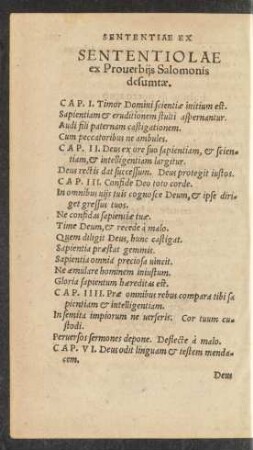 SENTENTIAE EX
SENTENTIOLAE
ex Prouerbijs Salomonis
desumtæ.
CAP. I. Timor Domini scientiæ initium est.
Sapientiam & eruditionem stulti aspernantur.
Audi fili paternam castigationem.
Cum peccatoribus ne ambules.
CAP. II. Deus ex ore suo sapientiam, & scien-
tiam, & intelligentiam largitur.
Deus rectis dat successum. Deus protegit iustos.
CAP. III. Confide Deo toto corde.
In omnibus uijs tuis cognosce Deum, & ipse diri-
get gressus tuos.
Ne confidas sapientiæ tuæ.
Time Deum, & recede à malo.
Quem diligit Deus, hunc castigat.
Sapientia præstat gemmis.
Sapientia omnia preciosa uincit.
Ne æmulare hominem iniustum.
Gloria sapientum hæreditas est.
CAP. IIII. Præ omnibus rebus compara tibi sa
pientiam & intelligentiam.
In semita impiorum ne uerseris. Cor tuum cu-
stodi.
Peruersos sermones depone. Deflecte à malo.
CAP. VI. Deus odit linguam & testem menda-
cem.
Deus